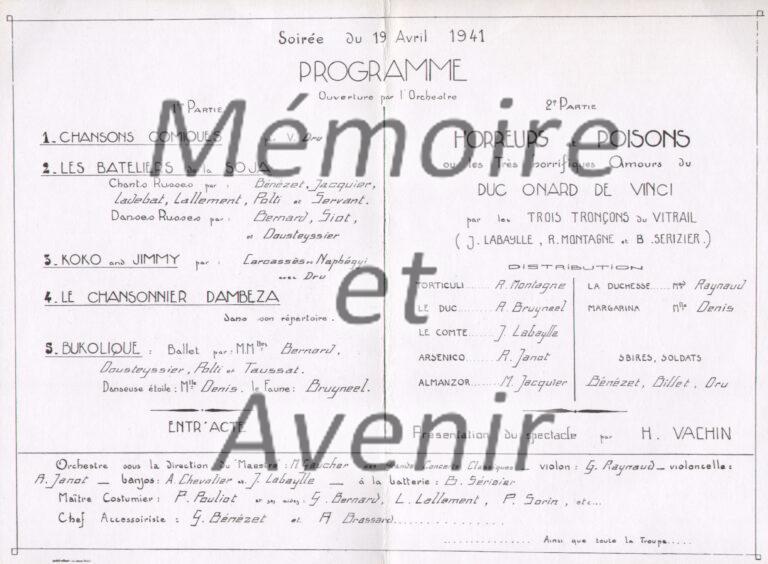 Soirée du 19 Avril 1941
PROGRAMME
Ouverture par l'Orchestre
1re PARTIE
1. CHANSONS COMIQUES V. Dru
2. LES BATELIERS de la SOJA
Chants Russes par : Bénézet, Jacquier,
Ladebat, Lallement, Polti et Servant.
Danses Russes par : Bernard, Siot,
et Dousteyssier
3. KOKO and JIMMY par : Carcassès et Naphégyi
avec Dru
4. LE CHANSONNIER DAMBEZA
dans son répertoire.
5. BUKOLIQUE : Ballet par : M.Mlles Bernard,
Dousteyssier, Polti et Taussat.
Danseuse étoile : Mlle Denis. le Faune : Bruyneel.
ENTR'ACTE
2e PARTIE
HORREURS POISONS
ou les Très horrifiques Amours du
DUC ONARD DE VINCI
par les TROIS TRONÇONS du VITRAIL
( J. LABAYLLE, R. MONTAGNE et B. SERIZIER.)
DISTRIBUTION
TORTICULI ..... R. Montagne
LE DUC ..... A. Bruyneel
LE COMTE ..... J. Labaylle
ARSENICO ..... A. Janot
ALMANZOR ..... M. Jacquier
LA DUCHESSE ..... Raynaud
MARGARINA Mlle Denis
SBIRES, SOLDATS
Bénézet, Billet, Dru
Présentation du spectacle par H. VACHIN
Orchestre sous la direction du "Maestro" : M. Gaucher des Grands Concerts Classiques — violon : G. Raynaud — violoncelle :
A. Janot — banjos : A. Chevalier et J. Labaylle — à la batterie : B. Sérisier
Maître Costumier : P. Pouliot et ses aides : G. Bernard, L. Lallement, P. Sorin, etc...
Chef Accessoiriste : G. Bénézet et A Brossard..............
.............. Ainsi que toute la Troupe.....
Mémoire
et
Avenir